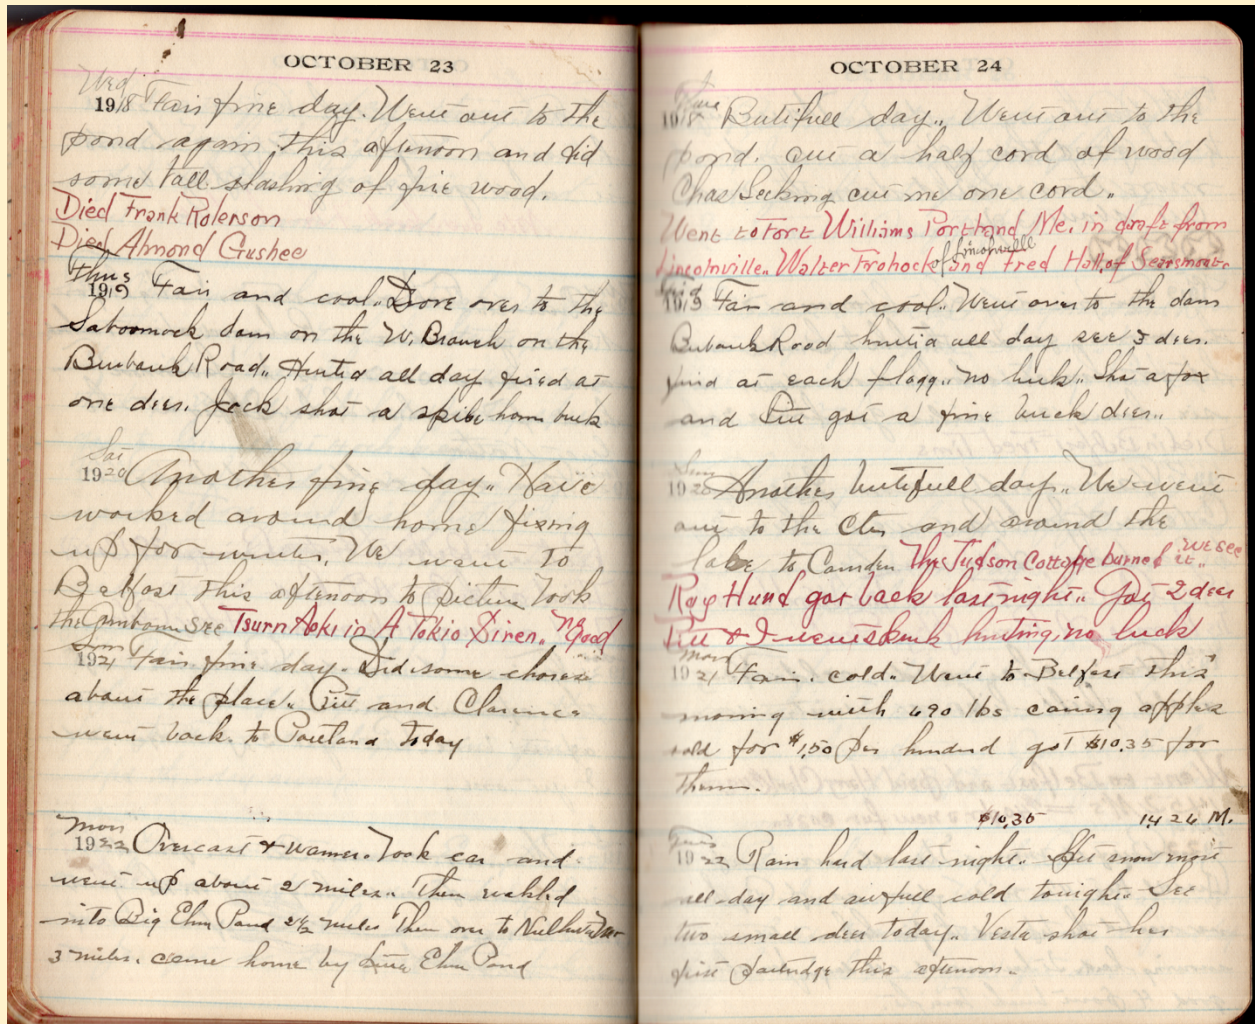 OCTOBER 23
Wed
1918 Fair fine day. Went out to the
pond again this afternoon and did
some tall slashing of fire wood.
Died Frank Rolerson
Died Almond Gushee
Thus
1919 Fair and cool.. Drove over to the
dam on the W. Branch on the
Burbank Road.. Hunted all day fired at
one deer. Jack shot a spike horn buck
Sat
1920 Another fine day.. Have
worked around home fixing
up for winter. We went to
Belfast this afternoon to picture Took
the see Tsuru Aoki in A Tokio Siren.. No good
Sun
1921 Fair fine day. Did some chores
about the place.. Pitt and Clarence
went back to Portland today
Mon
1922 Overcast & warmer. Took car and
went up about 2 miles.. Then walked
into Big Elm Pond 2 1/2 miles Then over to
3 miles. came home by Little Elm Pond
OCTOBER 24
Thus
1918 Butifull day.. Went out to the
pond. cut a half cord of wood
Chas cut me one cord..
Went to Fort Williams Portland Me. in draft from
Lincolnville.. Walter Frohock of Lincolnville and Fred Hall of Searsmont
1919 Fair and cool.. Went over to the dam
Burbank Road hunted all day see 3 deer.
fired at each flagg.. no luck.. Shot a fox
and got a fine buck deer..
Sun
1920 Another butifull day.. We went
out to the and around the
lake to Camden The Judson Cottage burned we see it..
Ray Hund got back last night.. Got 2 deer
Pitt & I went skunk hunting, no luck
Mon
1921 Fair. cold.. Went to Belfast this
morning with 690 lbs caning apples
sold for $1.50 per hundred got $10.35 for
them.
$10.35 1424 M.
Tues
1922 Rain hard last night.. snow most
all day and awfull cold tonight.. See
two small deer today.. Vesta shot her
first partridge this afternoon.